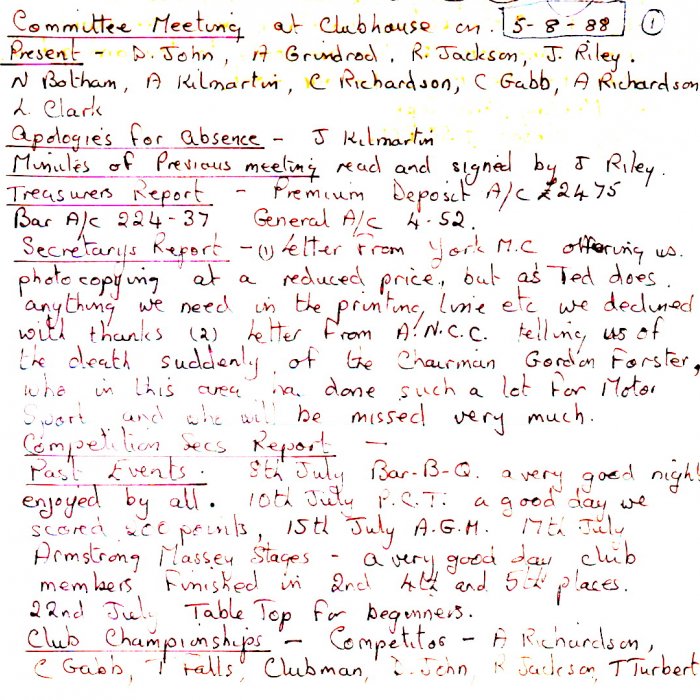 Committee Meeting at Clubhouse on. 5-8-88 1
Present - D. John, A Grindrod, R. Jackson, J. Riley.
N Boltham, A Kilmartin, C Richardson, C Gabb, A Richardson
L. Clark
Apologies for absence - J Kilmartin
Minutes of Previous meeting read and signed by J Riley.
Treasurers Report - Premium Deposit A/c £2475
Bar A/c 224-37 General A/c 4-52.
Secretarys Report - (1) Letter from York M.C offering us.
photocopying at a reduced price, but as Ted does.
anything we need in the printing line etc we declined
with thanks (2) Letter from A.N.C.C. telling us of
the death suddenly of the Chairman Gordon Forster,
who in this area done such a lot for Motor
Sport and who will be missed very much.
Competition Secs Report -
Past Events. 8th July Bar-B-Q. a very good night
enjoyed by all. 10th July P.C.T. a good day we
scored points, 15th July A.G.M. 17th July
Armstrong Massey Stages - a very good day club
members finished in 2nd 4th and 5th places.
22nd July Table Top for beginners.
Club Championships - Competitor - A Richardson,
C Gabb, T Falls, Clubman, D. John, R Jackson, T Turbert